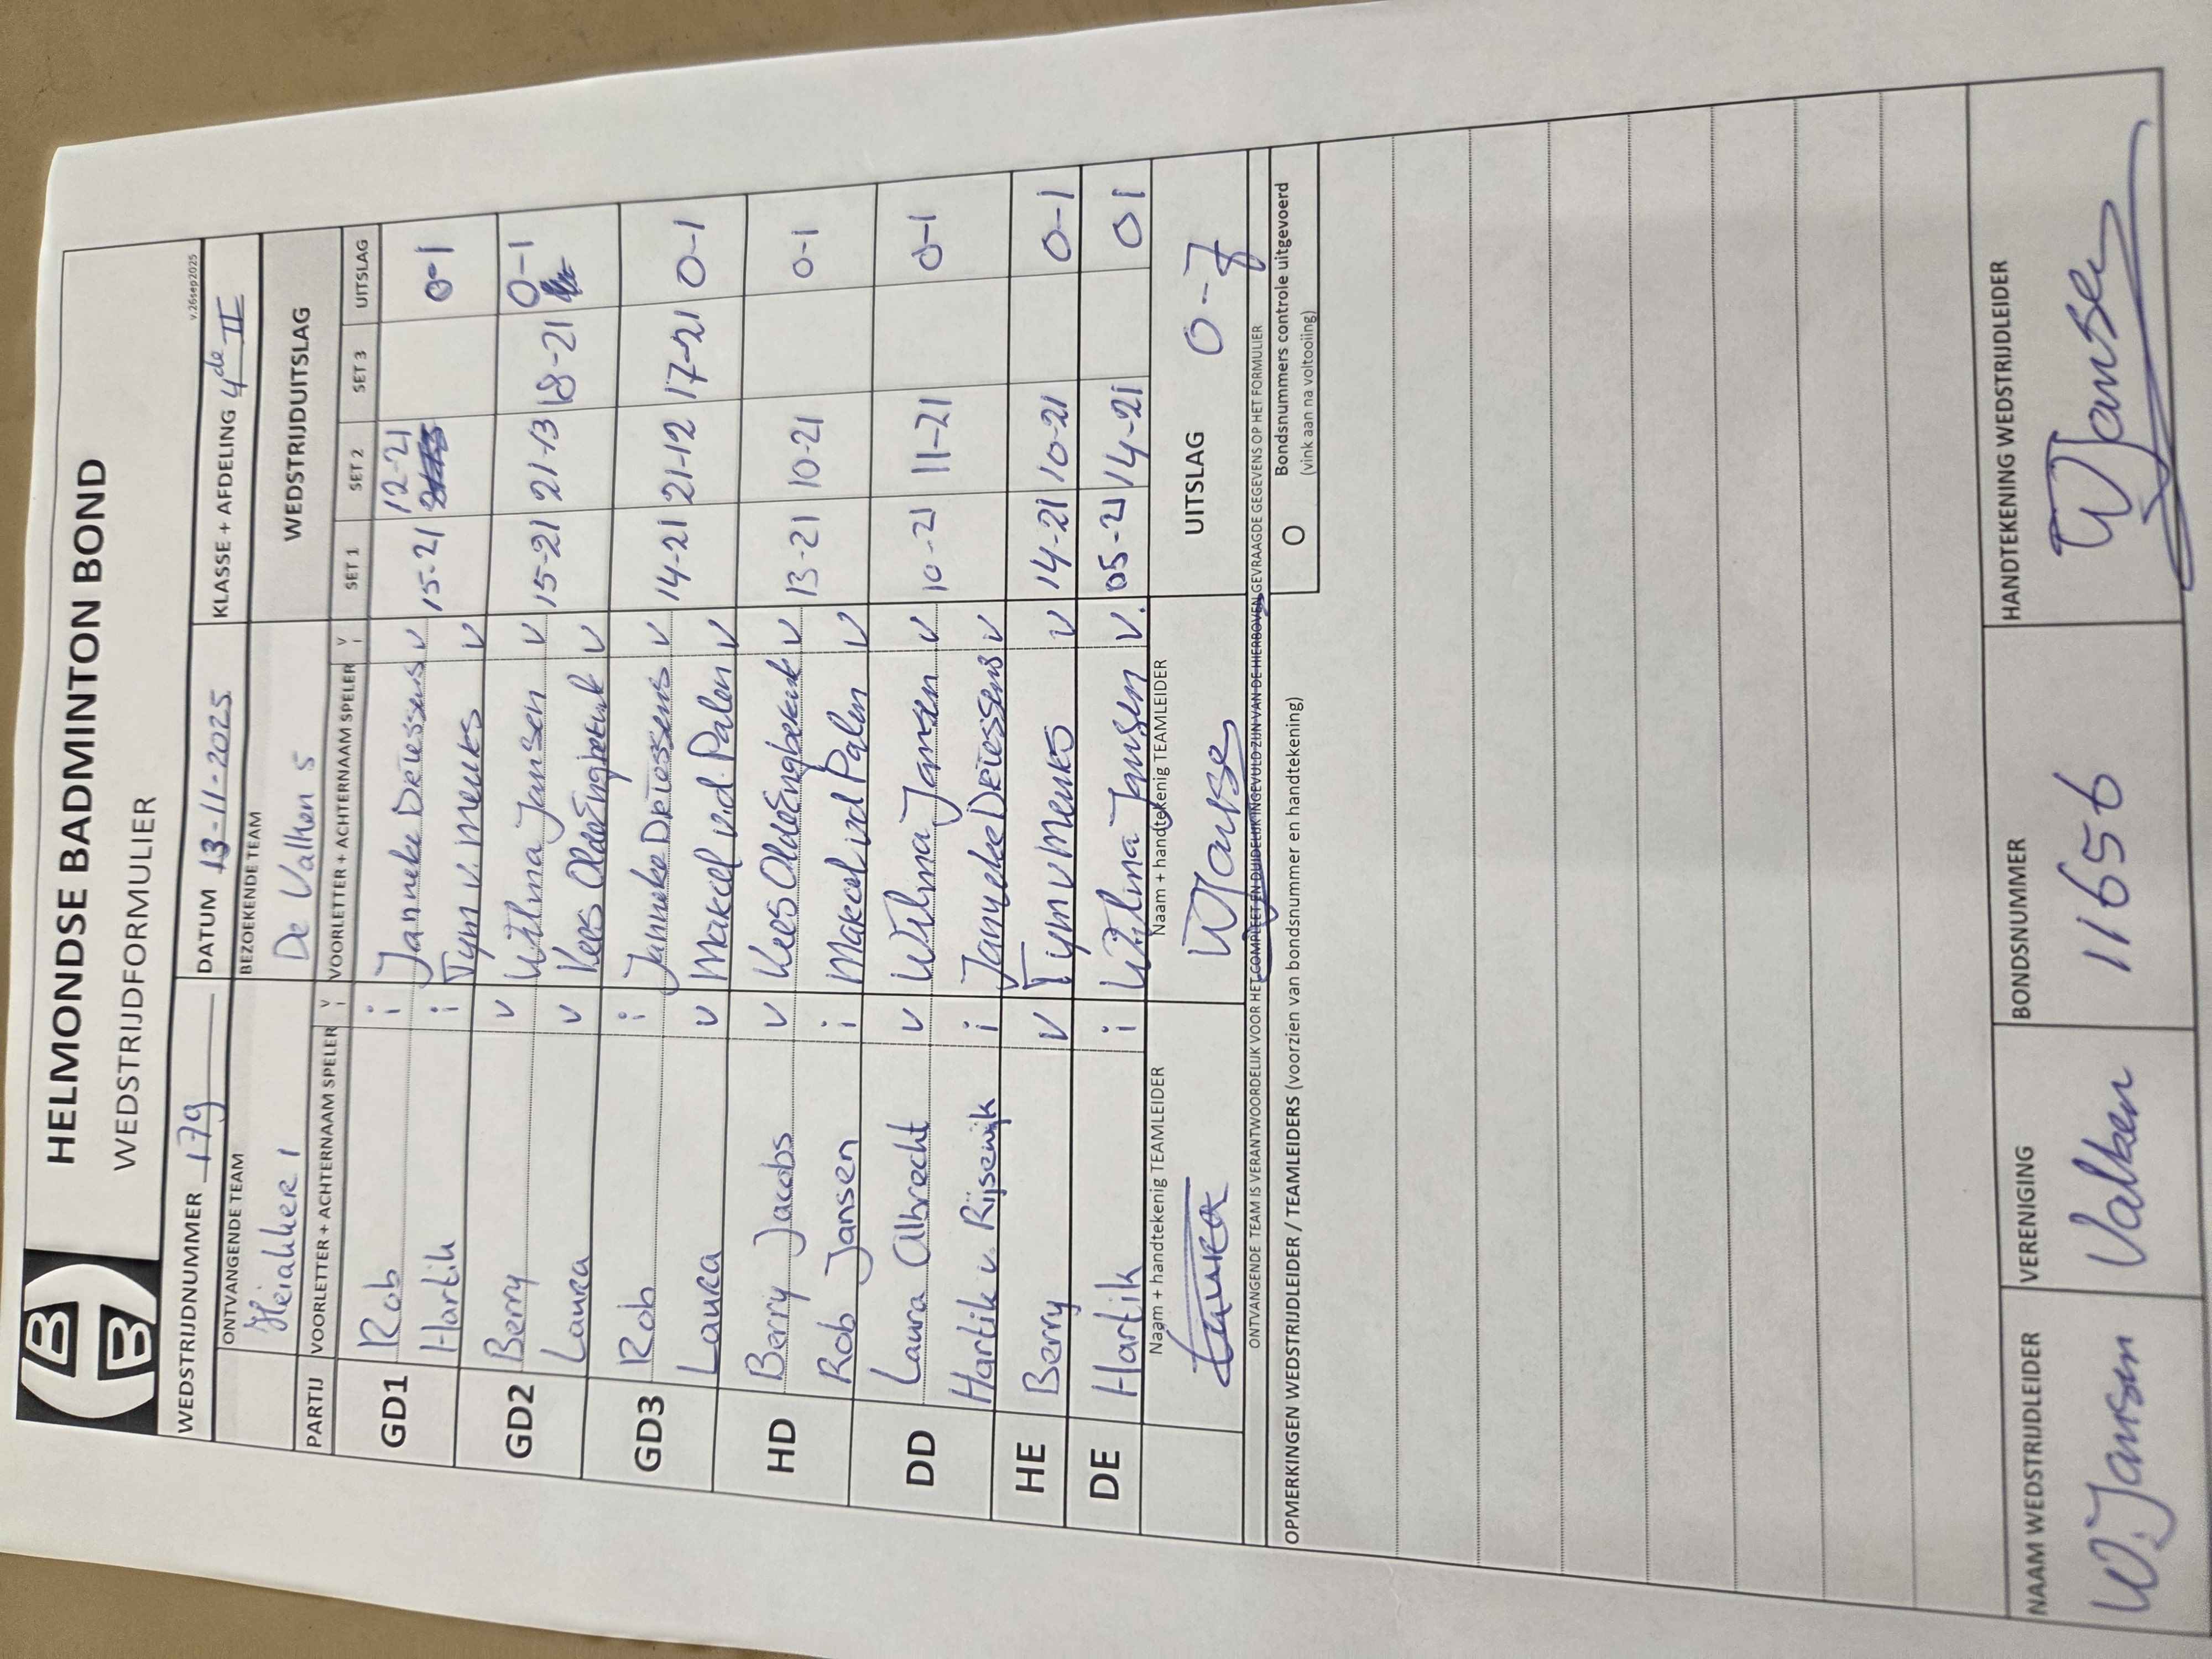 HELMONDSE BADMINTON BOND
WEDSTRIJDFORMULIER
v.26sep2025
WEDSTRIJDNUMMER 179 DATUM 13-11-2025 KLASSE + AFDELING 4de II
ONTVANGENDE TEAM BEZOEKENDE TEAM
Heiakker 1 De Valken 5 WEDSTRIJDUITSLAG
PARTIJ VOORLETTER + ACHTERNAAM SPELER V i VOORLETTER + ACHTERNAAM SPELER V i SET 1 SET 2 SET 3 UITSLAG
GD1 Rob i Janneke Driessens v 15-21 12-21 0-1
Hartik i Tym v. Menks v
GD2 Berry v Wilma Jansen v 15-21 21-13 18-21 0-1
Laura v Kees v
GD3 Rob i Janneke Driessens v 14-21 21-12 17-21 0-1
Laura v Marcel v.d. Palen v
HD Berry Jacobs v Kees v 13-21 10-21 0-1
Rob Jansen i Marcel vd Palen v
DD Laura Albrecht v Wilma Jansen v 10-21 11-21 0-1
Hartik v. Rijsewijk i Janneke Driessens v
HE Berry v Tym v Menks v 14-21 10-21 0-1
DE Hartik i Wilma Jansen v. 05-21 14-21 0 1
Naam + handtekenig TEAMLEIDER Naam + handtekenig TEAMLEIDER
Laura WJansen UITSLAG 0-7
ONTVANGENDE TEAM IS VERANTWOORDELIJK VOOR HET COMPLEET EN DUIDELIJK INGEVULD ZIJN VAN DE HIERBOVEN GEVRAAGDE GEGEVENS OP HET FORMULIER
OPMERKINGEN WEDSTRIJDLEIDER / TEAMLEIDERS (voorzien van bondsnummer en handtekening)
O Bondsnummers controle uitgevoerd
(vink aan na voltooiing)
NAAM WEDSTRIJDLEIDER VERENIGING BONDSNUMMER HANDTEKENING WEDSTRIJDLEIDER
W. Jansen Valken 11656 WJansen